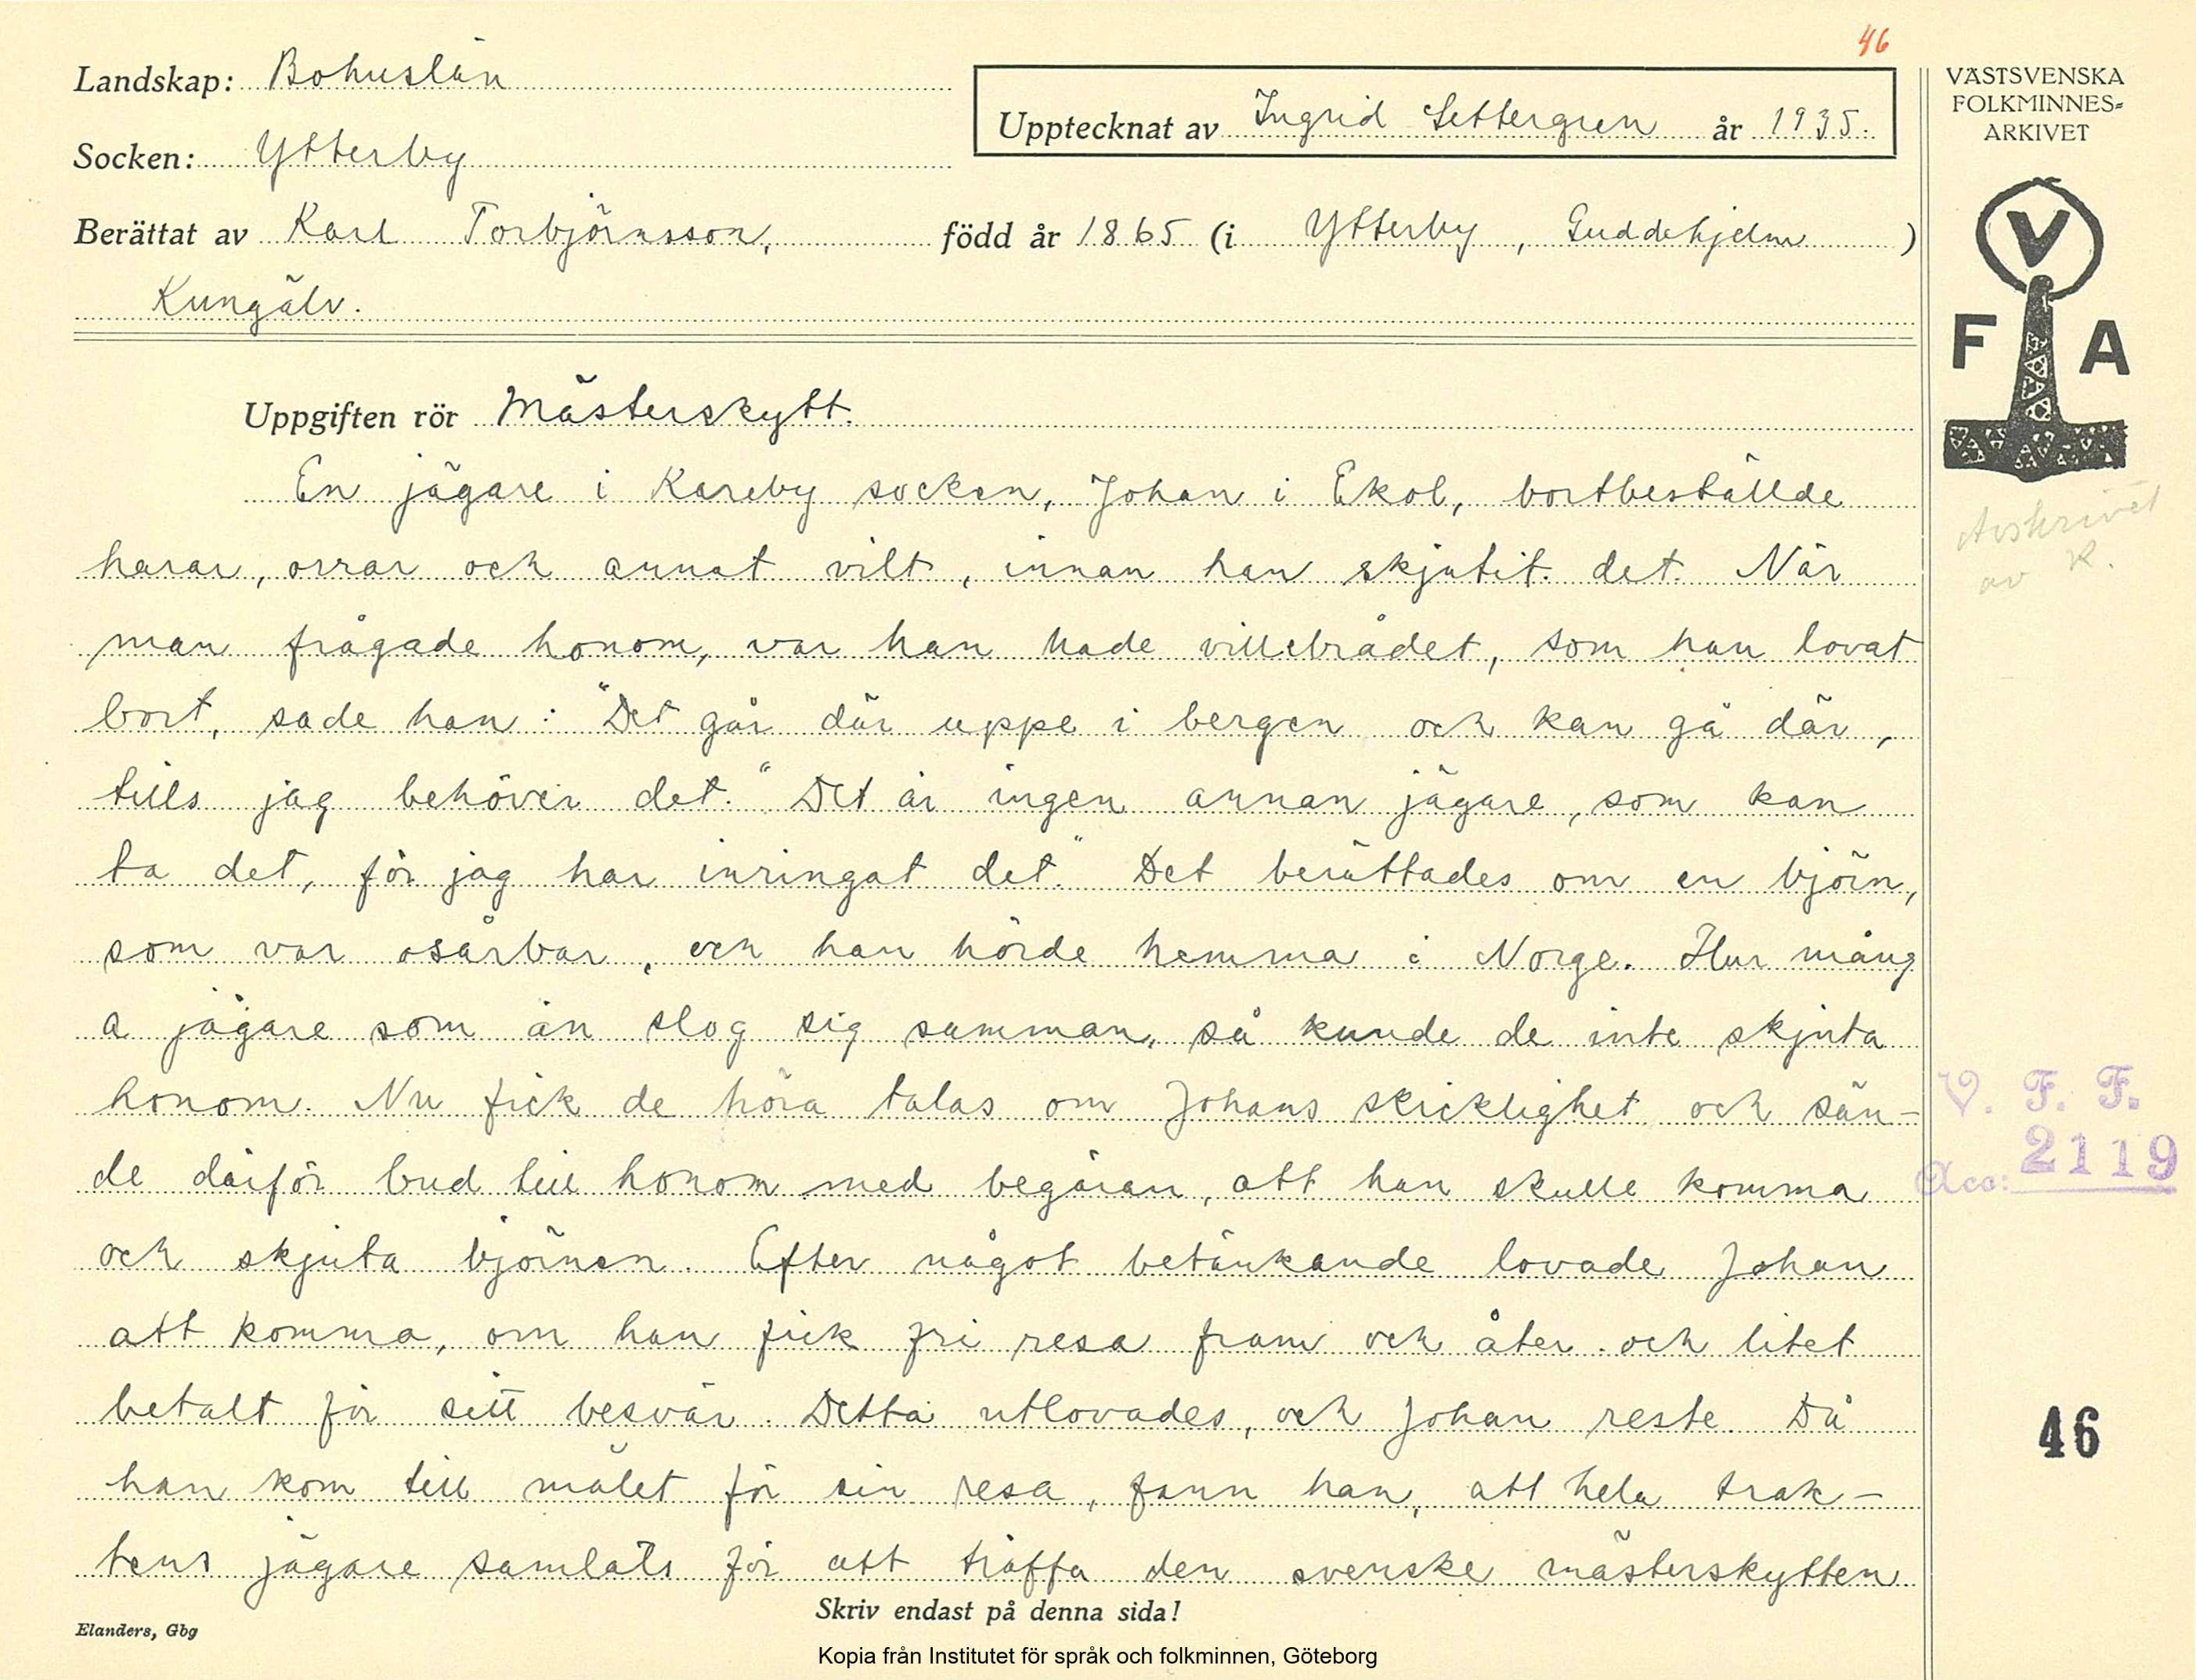 46
Landskap: Bohuslän
Socken: Ytterby
Upptecknat av Ingrid Settergren år 1935.
Berättat av Karl Torbjörnsson, född år 1865 (i Ytterby, Guddehjelm)
Kungälv.
Uppgiften rör Mästerskytt.
En jägare i Kareby socken, Johan i Ekol, bortbeställde
harar, orrar och annat vilt, innan han skjutit det. När
man frågade honom, var han hade villebrådet, som han lovat
bort, sade han: "Det går där uppe i bergen och kan gå där,
tills jag behöver det." Det är ingen annan jägare, som kan
ta det, för jag har inringat det." Det berättades om en björn,
som var osårbar, och han hörde hemma i Norge. Hur mång
a jägare som än slog sig samman, så kunde de inte skjuta
honom. Nu fick de höra talas om Johans skicklighet och sän-
de därför bud till honom med begäran, att han skulle komma
och skjuta björnen. Efter något betänkande lovade Johan
att komma, om han fick fri resa fram och åter och litet
betalt för sitt besvär. Detta utlovades, och Johan reste. Då
han kom till målet för sin resa, fann han, att hela trak-
tens jägare samlats för att träffa den svenske mästerskytten
Skriv endast på denna sida!
Elanders, Gbg
Kopia från Institutet för språk och folkminnen, Göteborg
VÄSTSVENSKA
FOLKMINNES-
ARKIVET
V
F A
Avskrivet
av K.
V. F. F.
Acc: 2119
46